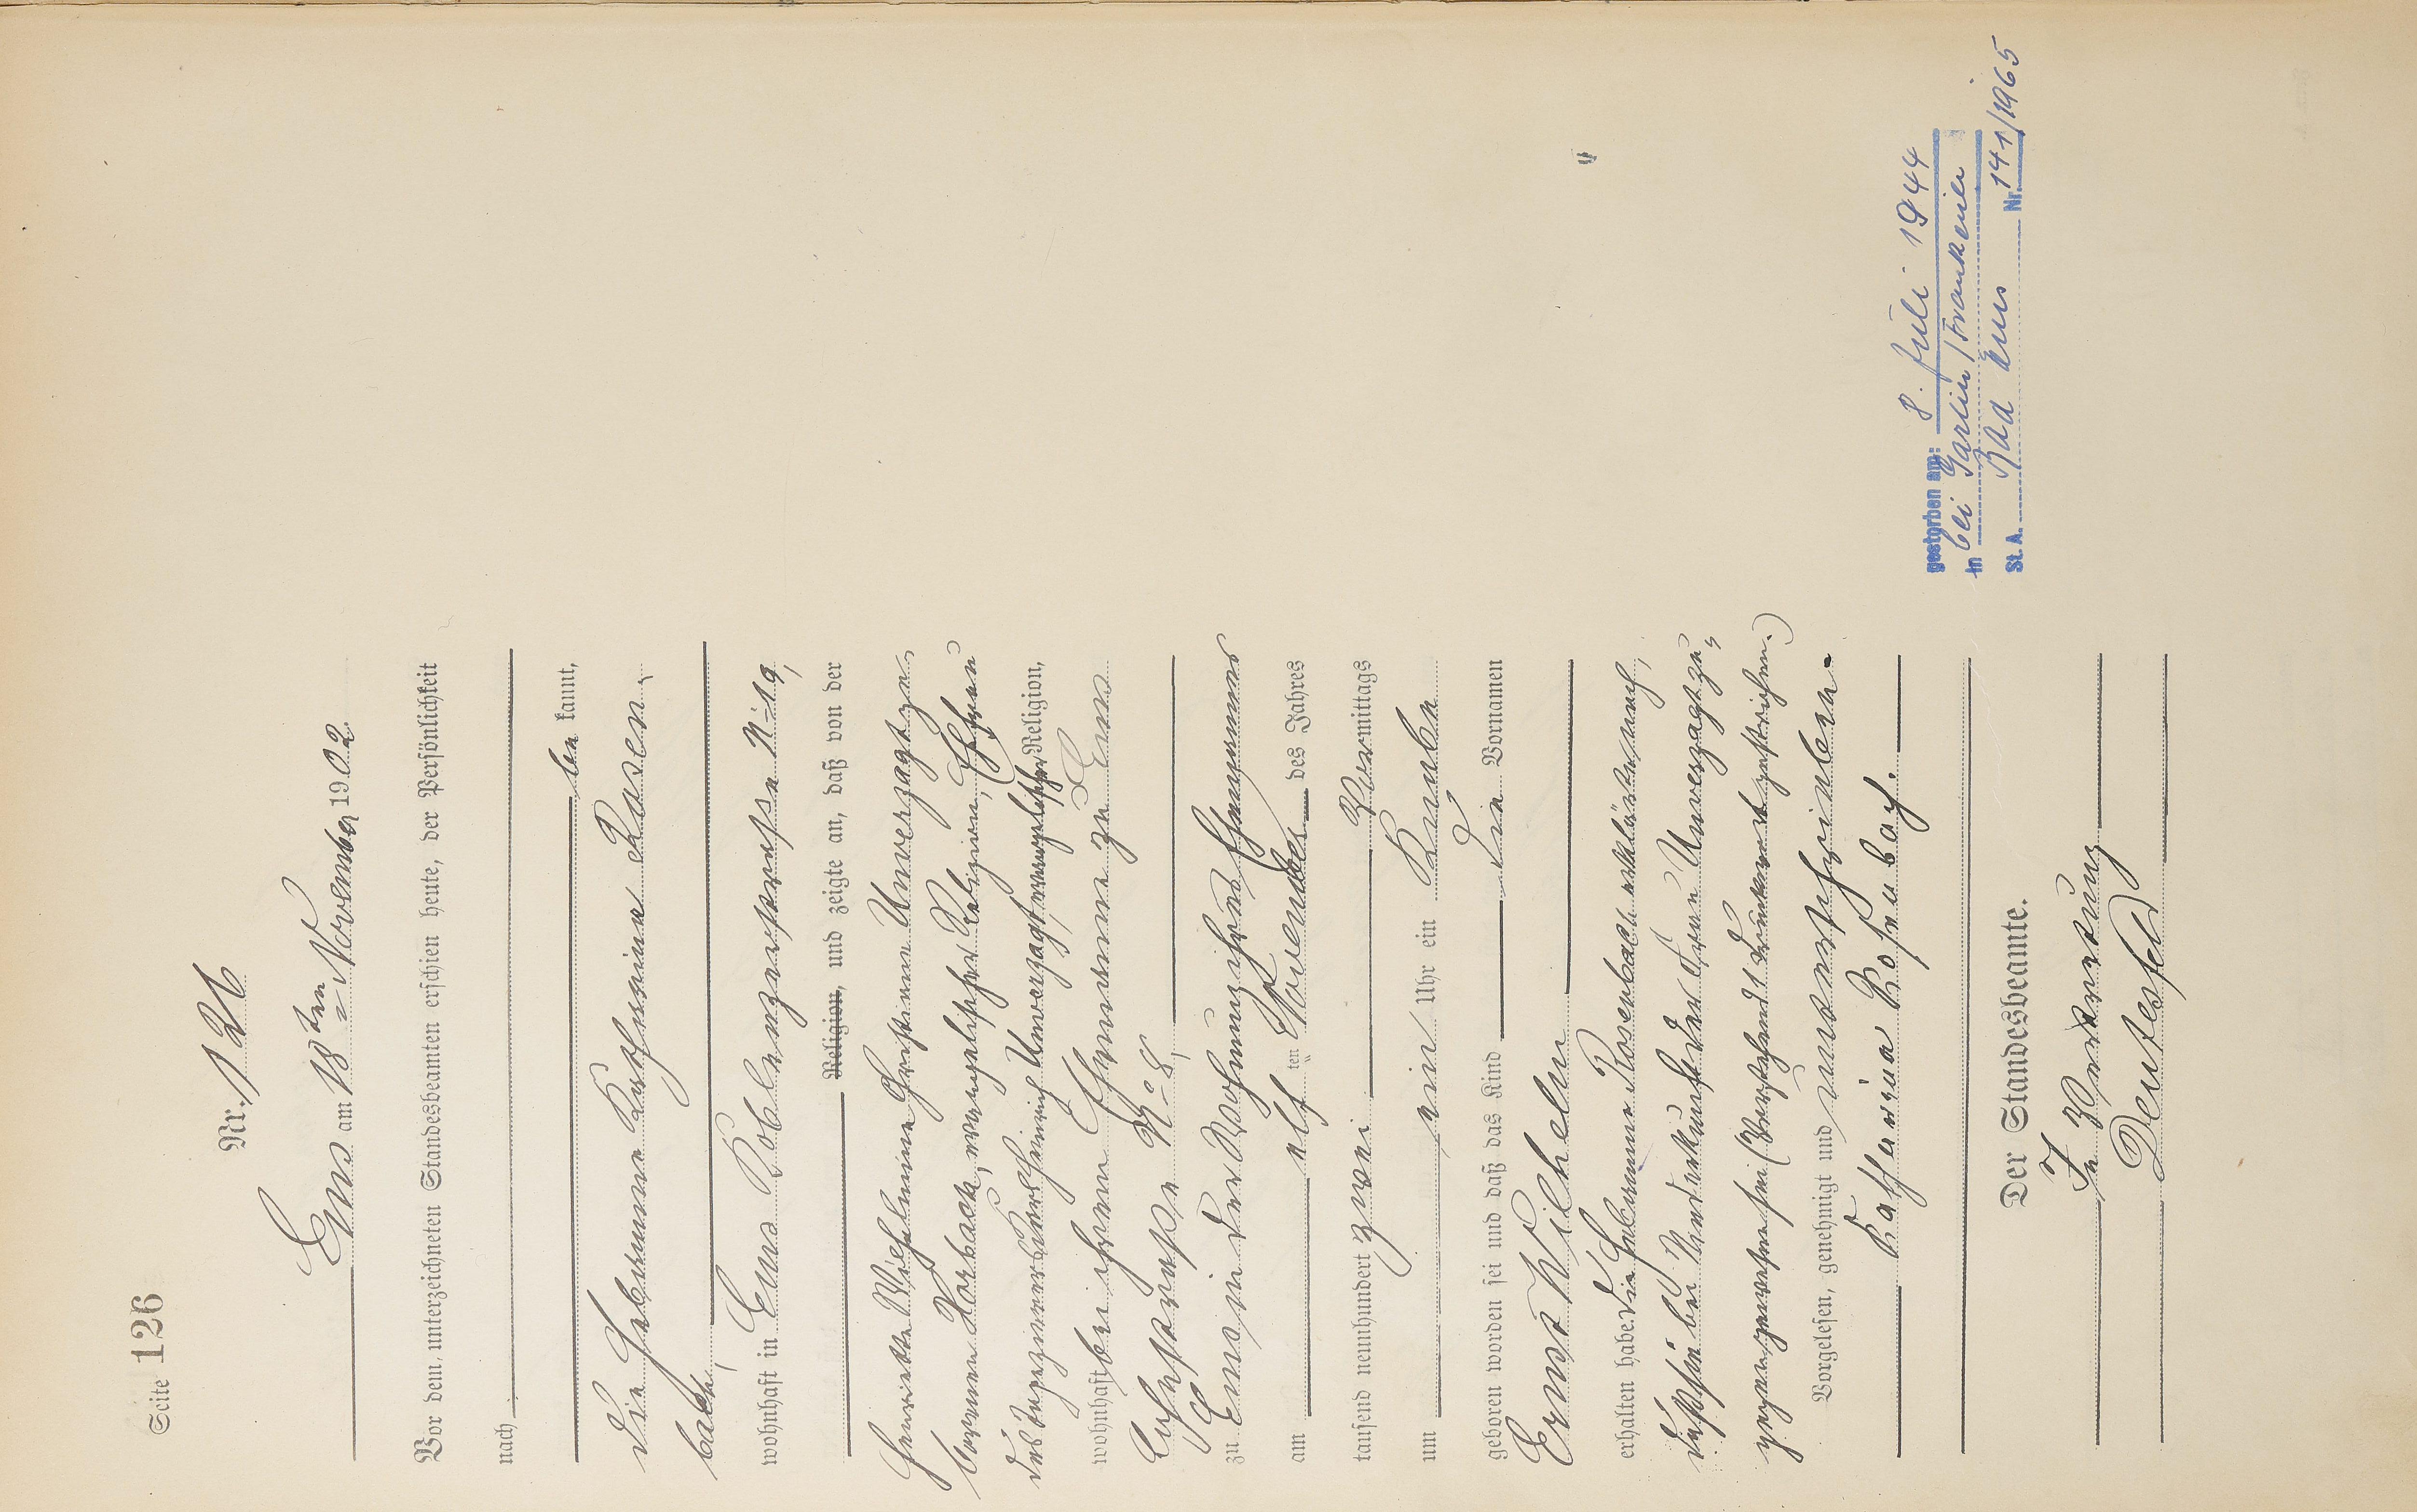 Seite 126
Nr. 126
Ems am 13ten November 1902
Vor dem unterzeichneten Standesbeamten erschien heute, der Persönlichkeit
nach
be kannt,
die Hebamme Katharina Rosen,
bach,
wohnhaft in Ems Koblenzerstrasse No 19,
Religion, und zeigte an, daß von der
Henriette Wilhelmine Christiane Unverzagt ge,
borenen Korbach, evangelischer Religion, Ehefrau
des Tapezierers Karl Heinrich Unverzagt, evangelischer Religion,
wohnhaft bei ihrem Ehemanne zu Ems
No 8,
zu Ems in der Wohnung ihres Ehemannes
am elf ten November des Jahres
tausend neunhundert zwei Vormittags
um ein Uhr ein Knabe
geboren worden sei und daß das Kind die Vornamen
Ernst Wilhelm
erhalten habe. Die Hebamme Rosenbach erklärte noch,
daß sie bei der Niederkunft der Frau Unverzagt zu,
gegen gewesen sei (Vorstehend 1 Druckwort gestrichen.)
Vorgelesen, genehmigt und unterschrieben.
Katharina Rosenbach.
Der Standesbeamte.
In Vertretung
Deutesfeld
gestorben am: 8. Juli 1944
in bei Garlin / Frankreich
St. A. Bad Ems Nr. 141/1965